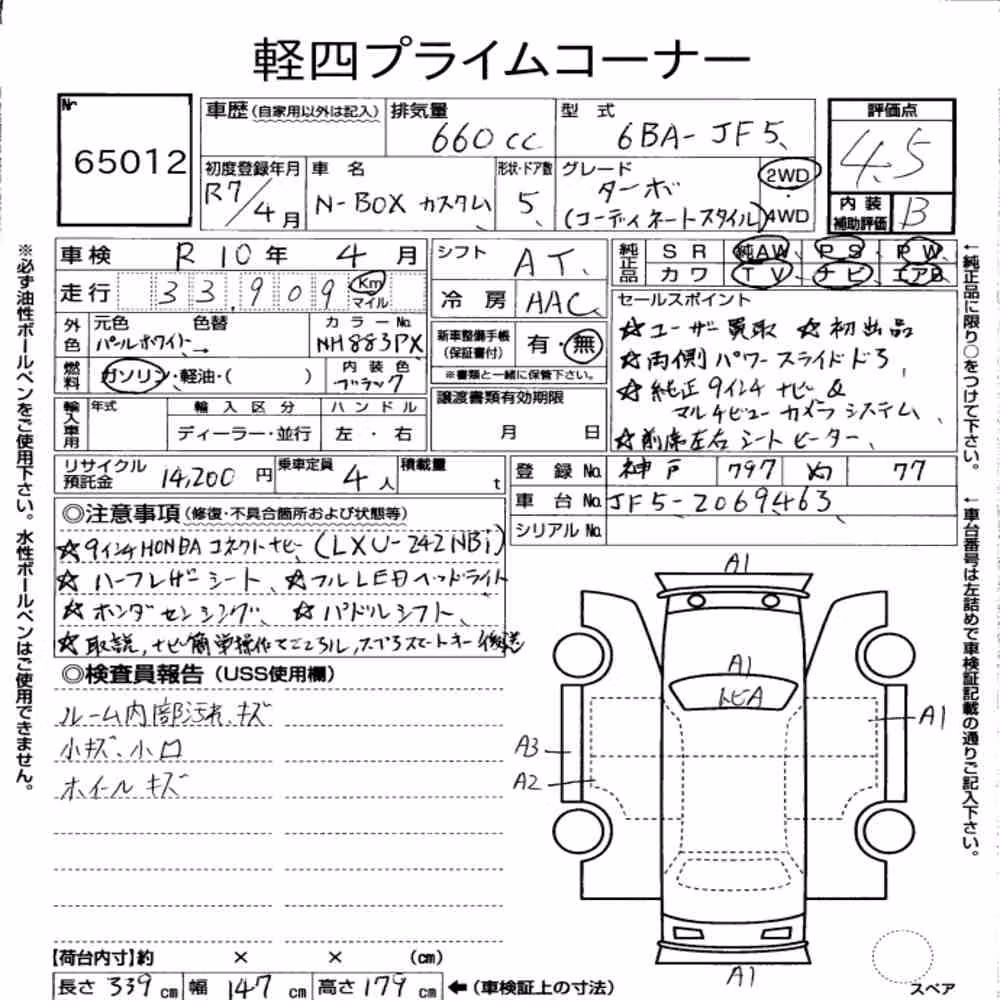 軽四プライムコーナー
Nr
65012
車歴(自家用以外は記入)
排気量 660cc
型式 6BA-JF5
評価点 4.5
内装補助評価 B
初度登録年月 R7/4月
車名 N-BOX カスタム
形状・ドア数 5
グレード ターボ
(コーディネートスタイル)
2WD
4WD
※必ず油性ボールペンをご使用下さい。水性ボールペンはご使用できません。
車検 R10年 4月
走行 33,909 Km マイル
外色 元色 パールホワイト 色替 →
カラーNo. NH883PX
燃料 ガソリン・軽油・( )
内装色 ブラック
輸入車用 年式
輸入区分 ディーラー・並行
ハンドル 左・右
シフト AT
冷房 AAC
新車整備手帳(保証書付) 有・無
※書類と一緒に保管下さい。
譲渡書類有効期限
月 日
純正品 SR 純AW PS PW
カワ TV ナビ エアB
セールスポイント
☆ユーザー買取 ☆初出品
☆両側パワースライドドア
☆純正9インチナビ&
マルチビューカメラシステム
☆前席左右シートヒーター
←純正品に限り○をつけて下さい。
←車台番号は左詰めで車検証記載の通りご記入下さい。
リサイクル預託金 14,200円
乗車定員 4人
積載量 t
登録No. 神戸 797 77
車台No. JF5-2069463
シリアルNo.
◎注意事項(修復・不具合箇所および状態等)
☆9インチHONDAコネクトナビ(LXU-242NBi)
☆ハーフレザーシート、☆フルLEDヘッドライト
☆ホンダセンシング ☆パドルシフト
☆取説,ナビ簡単操作 スペアスマートキー後送
◎検査員報告(USS使用欄)
ルーム内部汚れ、キズ
小キズ、小凹
ホイールキズ
A1
A1
トビA
A1
A3
A2
A1
スペア
【荷台内寸】約 × × (cm)
長さ 339cm 幅 147cm 高さ 179cm ←(車検証上の寸法)